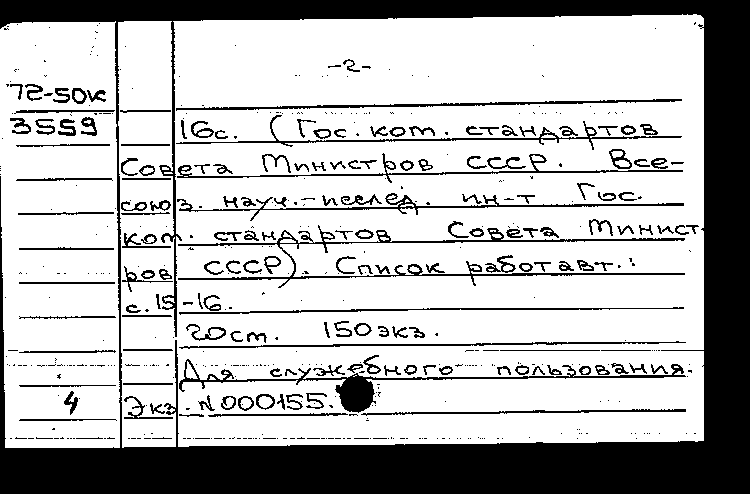 -2-
72-50к
3559 16с. (Гос. ком. стандартов
Совета Министров СССР. Все-
союз. науч.-исслед. ин-т Гос.
ком. стандартов Совета Минист-
ров СССР). Список работ авт.:
с. 15-16.
20 см. 150 экз.
Для служебного пользования.
4 Экз. N000155.